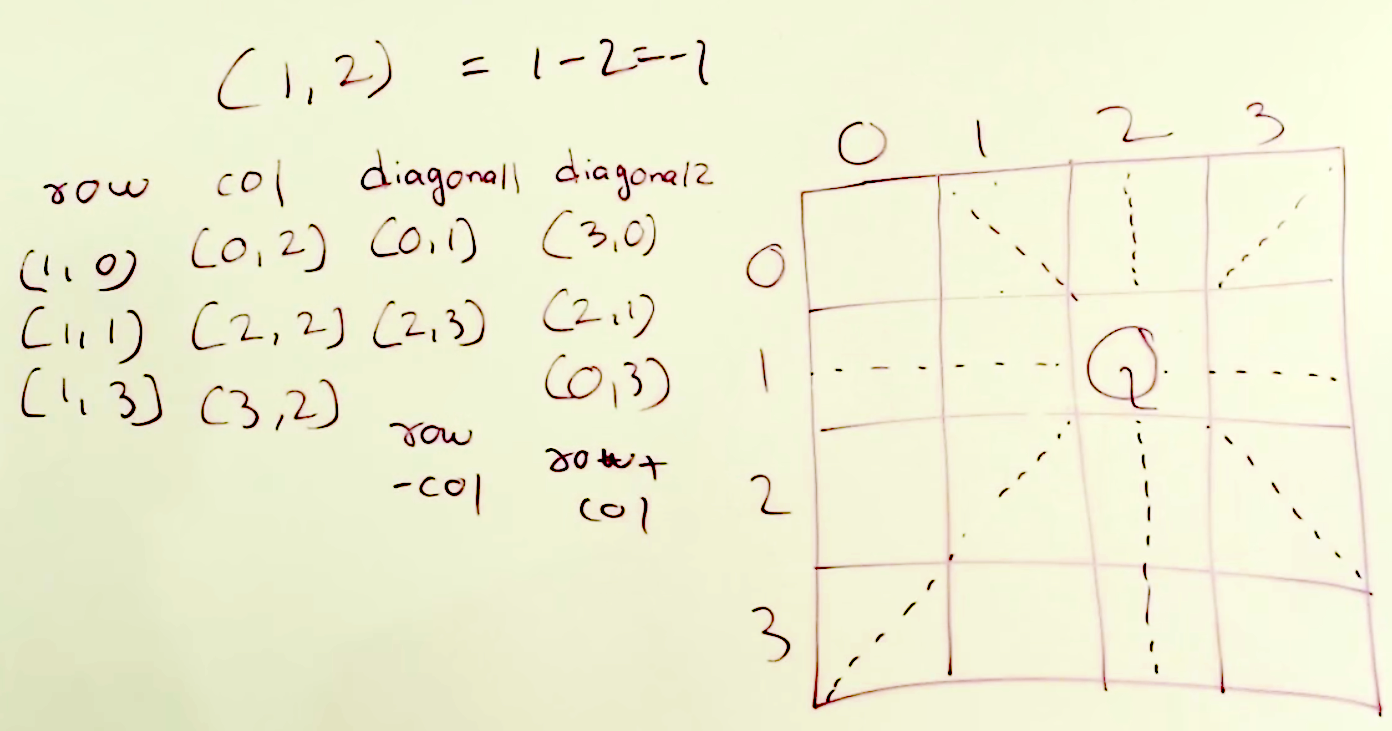 (1,2) = 1-2=-1
row col diagonal1 diagonal2
(1,0) (0,2) (0,1) (3,0)
(1,1) (2,2) (2,3) (2,1)
(1,3) (3,2) (0,3)
row
-col
row+
col
0 1 2 3
0
1 Q
2
3